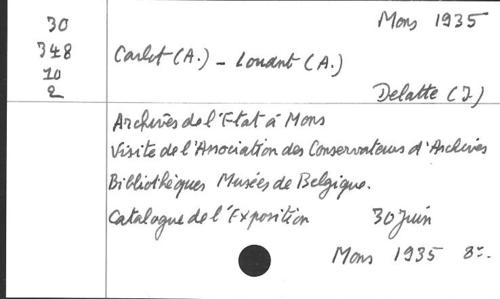 30 Mons 1935
348 Carlot (A.) - Louant (A.)
10
2 Delatte (I.)
Archives de l'Etat à Mons
Visite de l'Association des Conservateurs d'Archives
Bibliothèques Musées de Belgique.
Catalogue de l'Exposition 30 Juin
Mons 1935 8°.